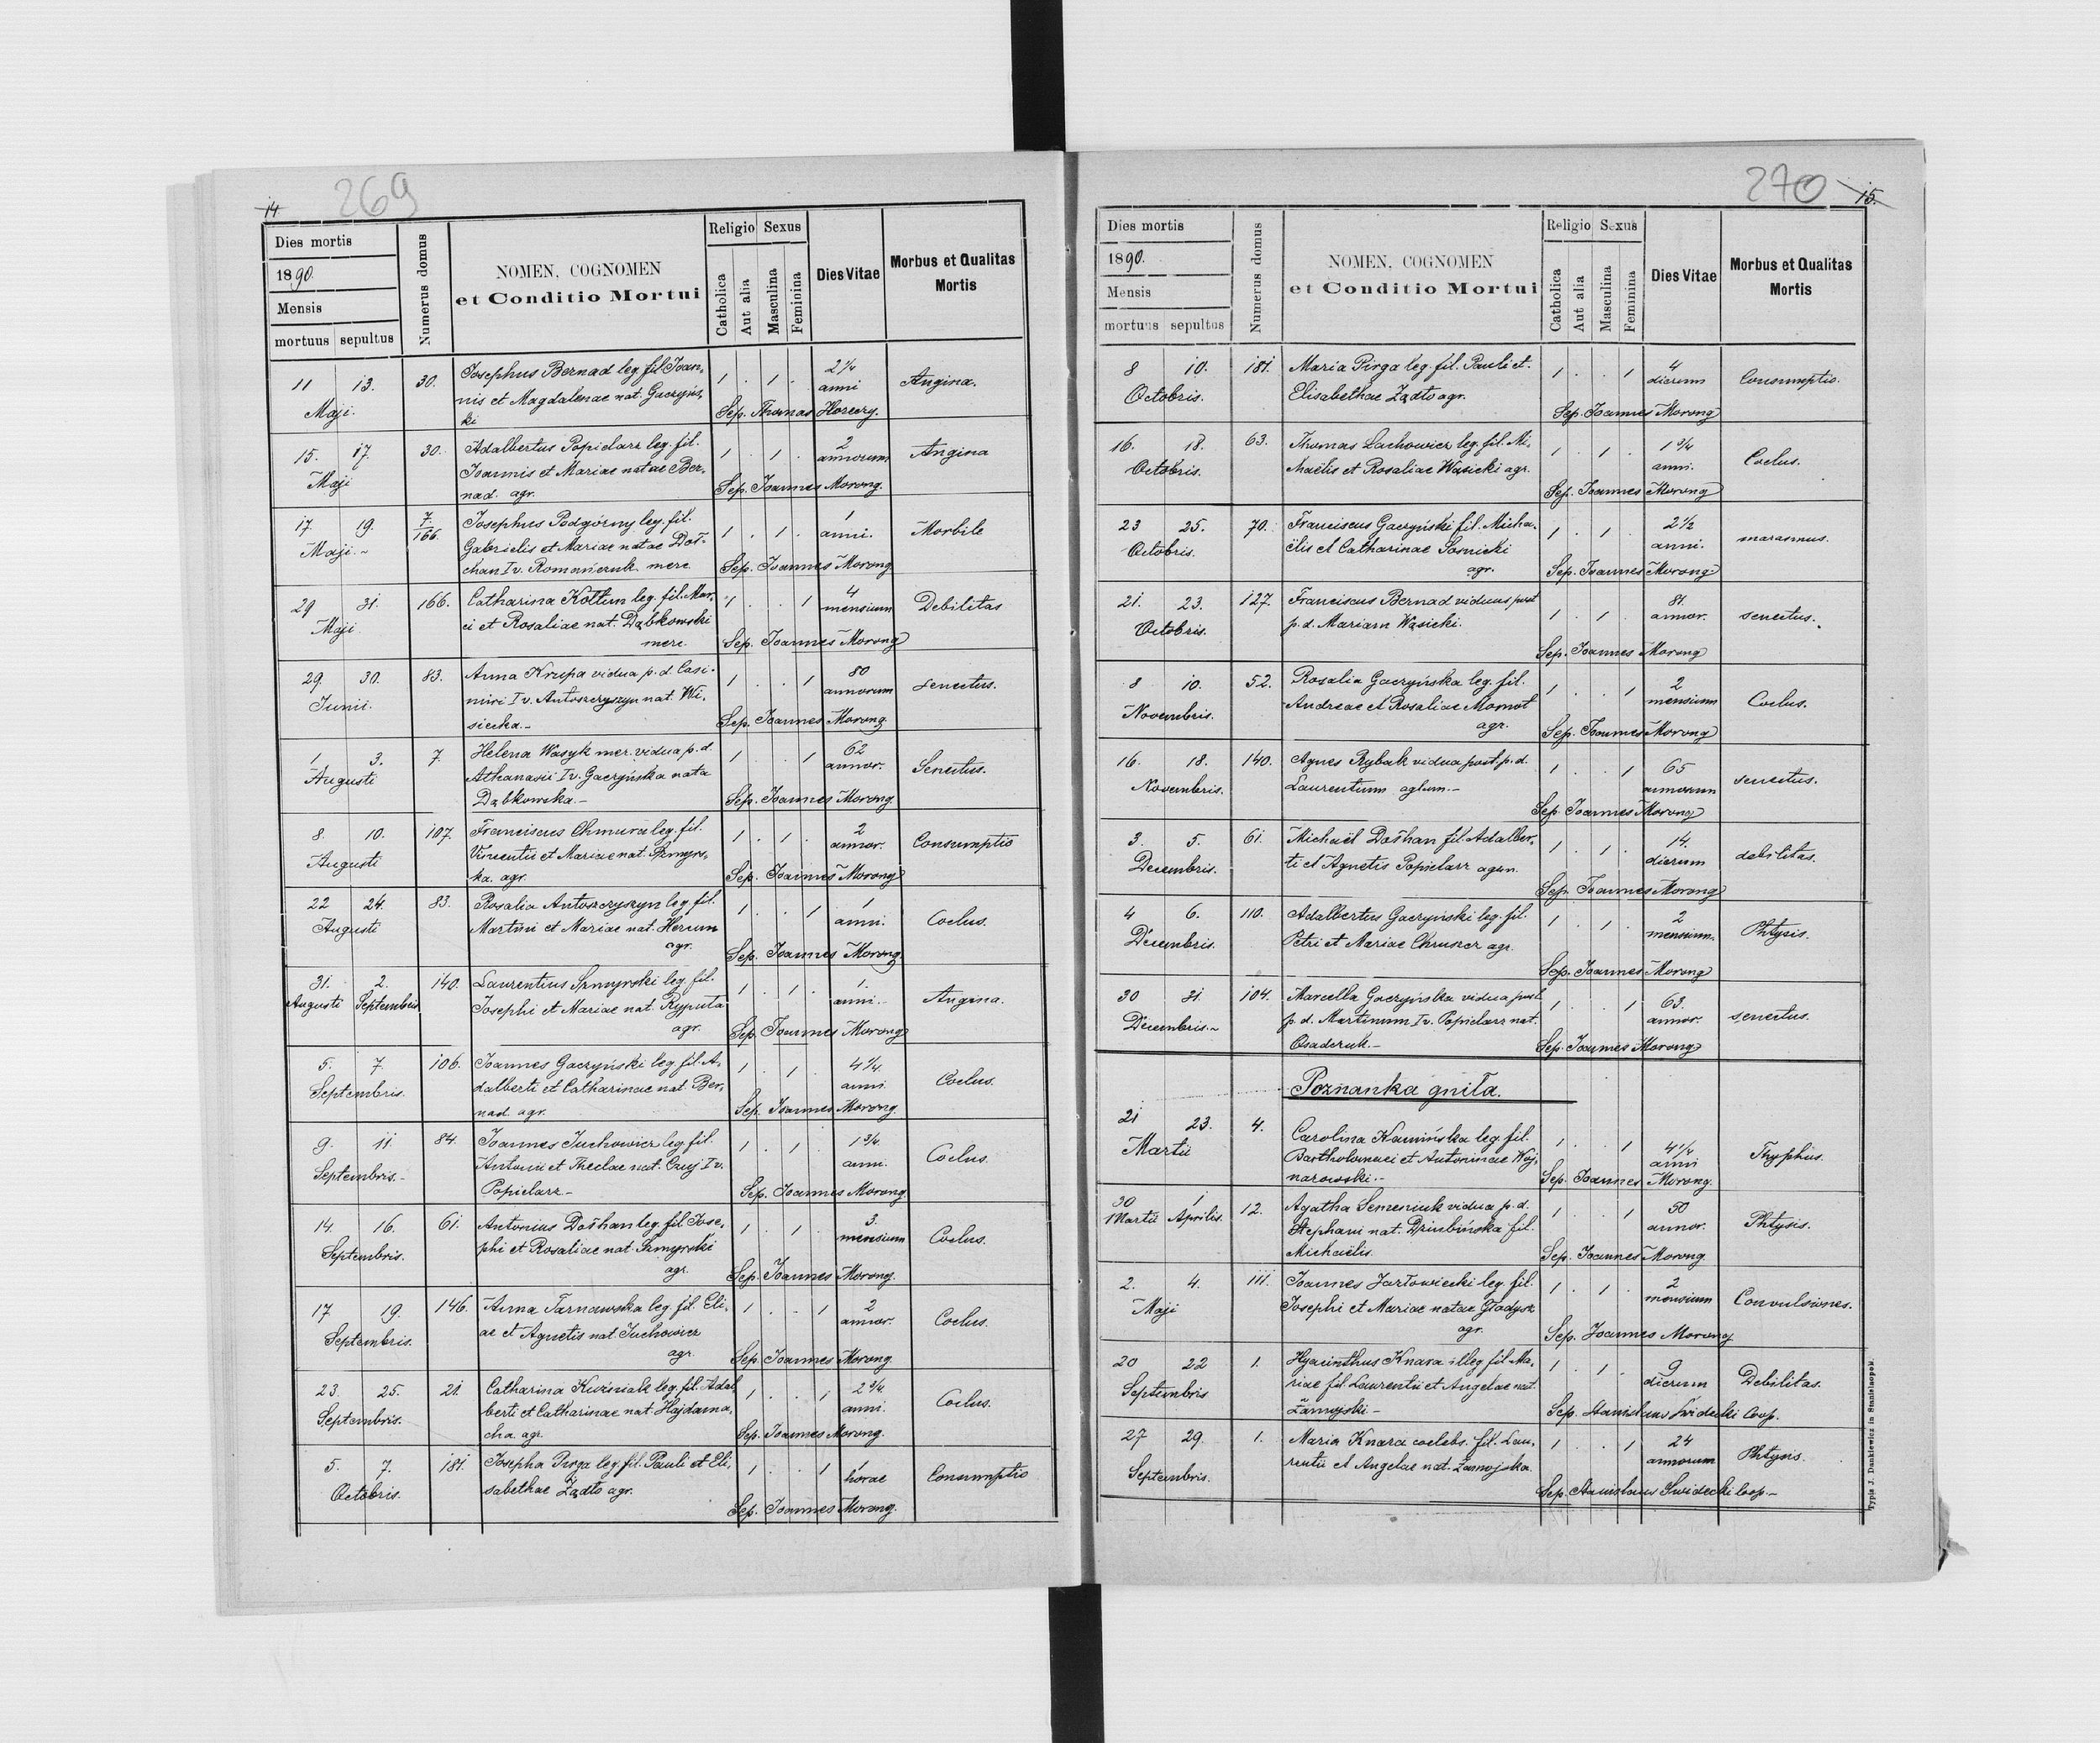 14
269
Dies mortis
1890.
Mensis
mortuus sepultus
Numerus domus
NOMEN, COGNOMEN
et Conditio Mortui
Religio Sexus
Catholica
Aut alia
Masculina
Feminina
Dies Vitae
Morbus et Qualitas
Mortis
11 13. 30. Josephus Bernad leg. fil. Joan, 1 . 1 . 2 1/4 Angina.
Maji. nis et Magdalenae nat. Gaczyńs, anni
ki Sep. Thomas Horeczy.
15. 17. 30. Adalbertus Popielarz leg. fil. 1 1 . 2 Angina
Maji Joannis et Mariae natae Ber, annorum
nad. agr. Sep. Joannes Morong.
17 19. 7./166. Josephus Podgórny leg. fil. 1 . 1 . 1 Morbile
Maji.~ Gabrielis et Mariae natae Doł- anni.
chan Iv. merc Sep. Joannes Morong
29 31. 166. Catharina Kottun leg. fil. Mar, 1 . . 1 4 Debilitas
Maji ci et Rosaliae nat. Dąbkowski mensium
merc. Sep. Joannes Morong
29. 30. 83. Anna Krupa vidua p. d. Casi- 1 . . 1 80 Senectus.
Junii. miri Iv. Antoszczyszyn nat. Wi, annorum
siecka.- Sep. Joannes Morong
1 3. 7. Helena Wasyk mer. vidua p. d. 1 . 1 62 Senectus.
Augusti Athanasii Iv. Gaczyńska nata annor.
Dąbkowska.- Sep. Joannes Morong.
8. 10. 107. Franciscus Chmura leg. fil. 1 . 1 . 2 Consumptio
Augusti Vincentii et Mariae nat. Szmyrs, annor.
ka. agr. Sep. Joannes Morong
22 24. 83. Rosalia Antoszczyszyn leg. fil. 1 . . 1 1 Coclus.
Augusti Martini et Mariae nat. Herum anni.
agr. Sep. Joannes Morong
31. 2. 140. Laurentius Szmyrski leg. fil. 1 . 1 . 1. Angina.
Augusti Septembris Josephi et Mariae nat. Ryputa anni.
agr. Sep. Joannes Morong
5. 7. 106. Joannes Gaczyński leg. fil. A, 1 . 1 . 4 1/4 Coclus.
Septembris. dalberti et Catharinae nat. Ber, anni
nad. agr. Sep. Joannes Morong.
9. 11. 84. Joannes Juchowicz leg. fil. 1 . 1 1 3/4 Coclus.
Septembris.- Antonii et Theclae nat. Czuj Iv. anni.
Popielarz- Sep. Joannes Morong
14 16. 61. Antonius Dołhan leg. fil. Jose, 1 . 1 3. Coclus.
Septembris. phi et Rosaliae nat. Szmyrski mensium
agr. Sep. Joannes Morong.
17 19. 146. Anna Tarnawska leg. fil. Eli, 1 . . 1 2 Coclus.
Septembris. ae et Agnetis nat. Juchowicz annor.
agr. Sep. Joannes Morong
23. 25. 21. Catharina Kuźniak leg. fil. Adal 1 . . 1 2 3/4 Coclus.
Septembris. berti et Catharinae nat. Hajdama, anni.
cha. agr. Sep. Joannes Morong.
5. 7. 181. Josepha Pirga leg. fil. Pauli et Eli, 1 . . 1 1 Consumptio
Octobris. sabethae Ządło agr. horae
Sep. Joannes Morong.
270
15.
Dies mortis
1890.
Mensis
mortuus sepultus
Numerus domus
NOMEN, COGNOMEN
et Conditio Mortui
Religio Sexus
Catholica
Aut alia
Masculina
Feminina
Dies Vitae
Morbus et Qualitas
Mortis
8 10. 181. Maria Pirga leg. fil. Pauli et 1 . . 1 4 Consumptio.
Octobris. Elisabethae Ządło agr. dierum
Sep. Joannes Morong
16. 18. 63. Thomas Lachowicz leg. fil. Mi, 1 . 1 . 1 3/4 Coclus.
Octobris. chaelis et Rosaliae Wąsicki agr. anni.
Sep. Joannes Morong
23 25. 70. Franciscus Gaczyński fil. Micha- 1 . 1 . 2 1/2 marasmus.
Octobris. ëlis et Catharinae Sosnicki anni.
agr. Sep. Joannes Morong
21. 23. 127. Franciscus Bernad viduus post 1 . 1 . 81. senectus.
Octobris. p. d. Mariam Wąsicki. annor.
Sep. Joannes Morong
8 10. 52. Rosalia Gaczyńska leg. fil. 1 . . 1 2 Coclus.
Novembris. Andreae et Rosaliae Momot mensium
agr. Sep. Joannes Morong
16. 18. 140. Agnes Rybak vidua post. p. d. 1 . . 1 65 senectus.
Novembris. Laurentium .- annorum
Sep. Joannes Morong
3. 5. 61. Michaël Dołhan fil. Adalber, 1 . 1 . 14. debilitas.
Decembris. ti et Agnetis Popielarz dierum
Sep. Joannes Morong
4 6. 110. Adalbertus Gaczyński leg. fil. 1 . 1 . 2 Phtysis.
Decembris. Petri et Mariae agr. mensium.
Sep. Joannes Morong
30 31. 104. Marcella Gaczyńska vidua post 1 . . 1 63. senectus.
Decembris.~ p. d. Martinum Iv. Popielarz nat. annor.
Osadczuk.- Sep. Joannes Morong
Poznanka gniła.
21 23. 4. Carolina Kamińska leg. fil. 1 . 1 4 1/4 Thyphus.
Martii Bartholomaei et Antoninae Woj, anni
narowski.- Sep. Joannes Morong.
30 1 12. Agatha Semeniuk vidua p. d. 1 . 1 50 Phtysis.
Martii Aprilis. Stephani nat. Dziubińska fil. annor.
Michaëlis. Sep. Joannes Morong
2. 4. 111. Joannes Jarłowiecki leg. fil. 1 . 1 . 2 Convulsiones.
Maji Josephi et Mariae natae Gładysz mensium
agr. Sep. Joannes Morong
20 22 1. Hyacinthus Knara illeg. fil. Ma, 1 . 1 9 Debilitas.
Septembris riae fil. Laurentii et Angelae nat. dierum
Zamojski- Sep. Stanislaus Świdecki Coop.
27 29. 1. Maria Knara coelebs. fil. Lau, 1 . . 1 24 Phtysis.
Septembris. rentii et Angelae nat. Zamojska. annorum
Sep. Stanislaus Swidecki Coop.-
Typis J. Dankiewicz in Stanislaopok.